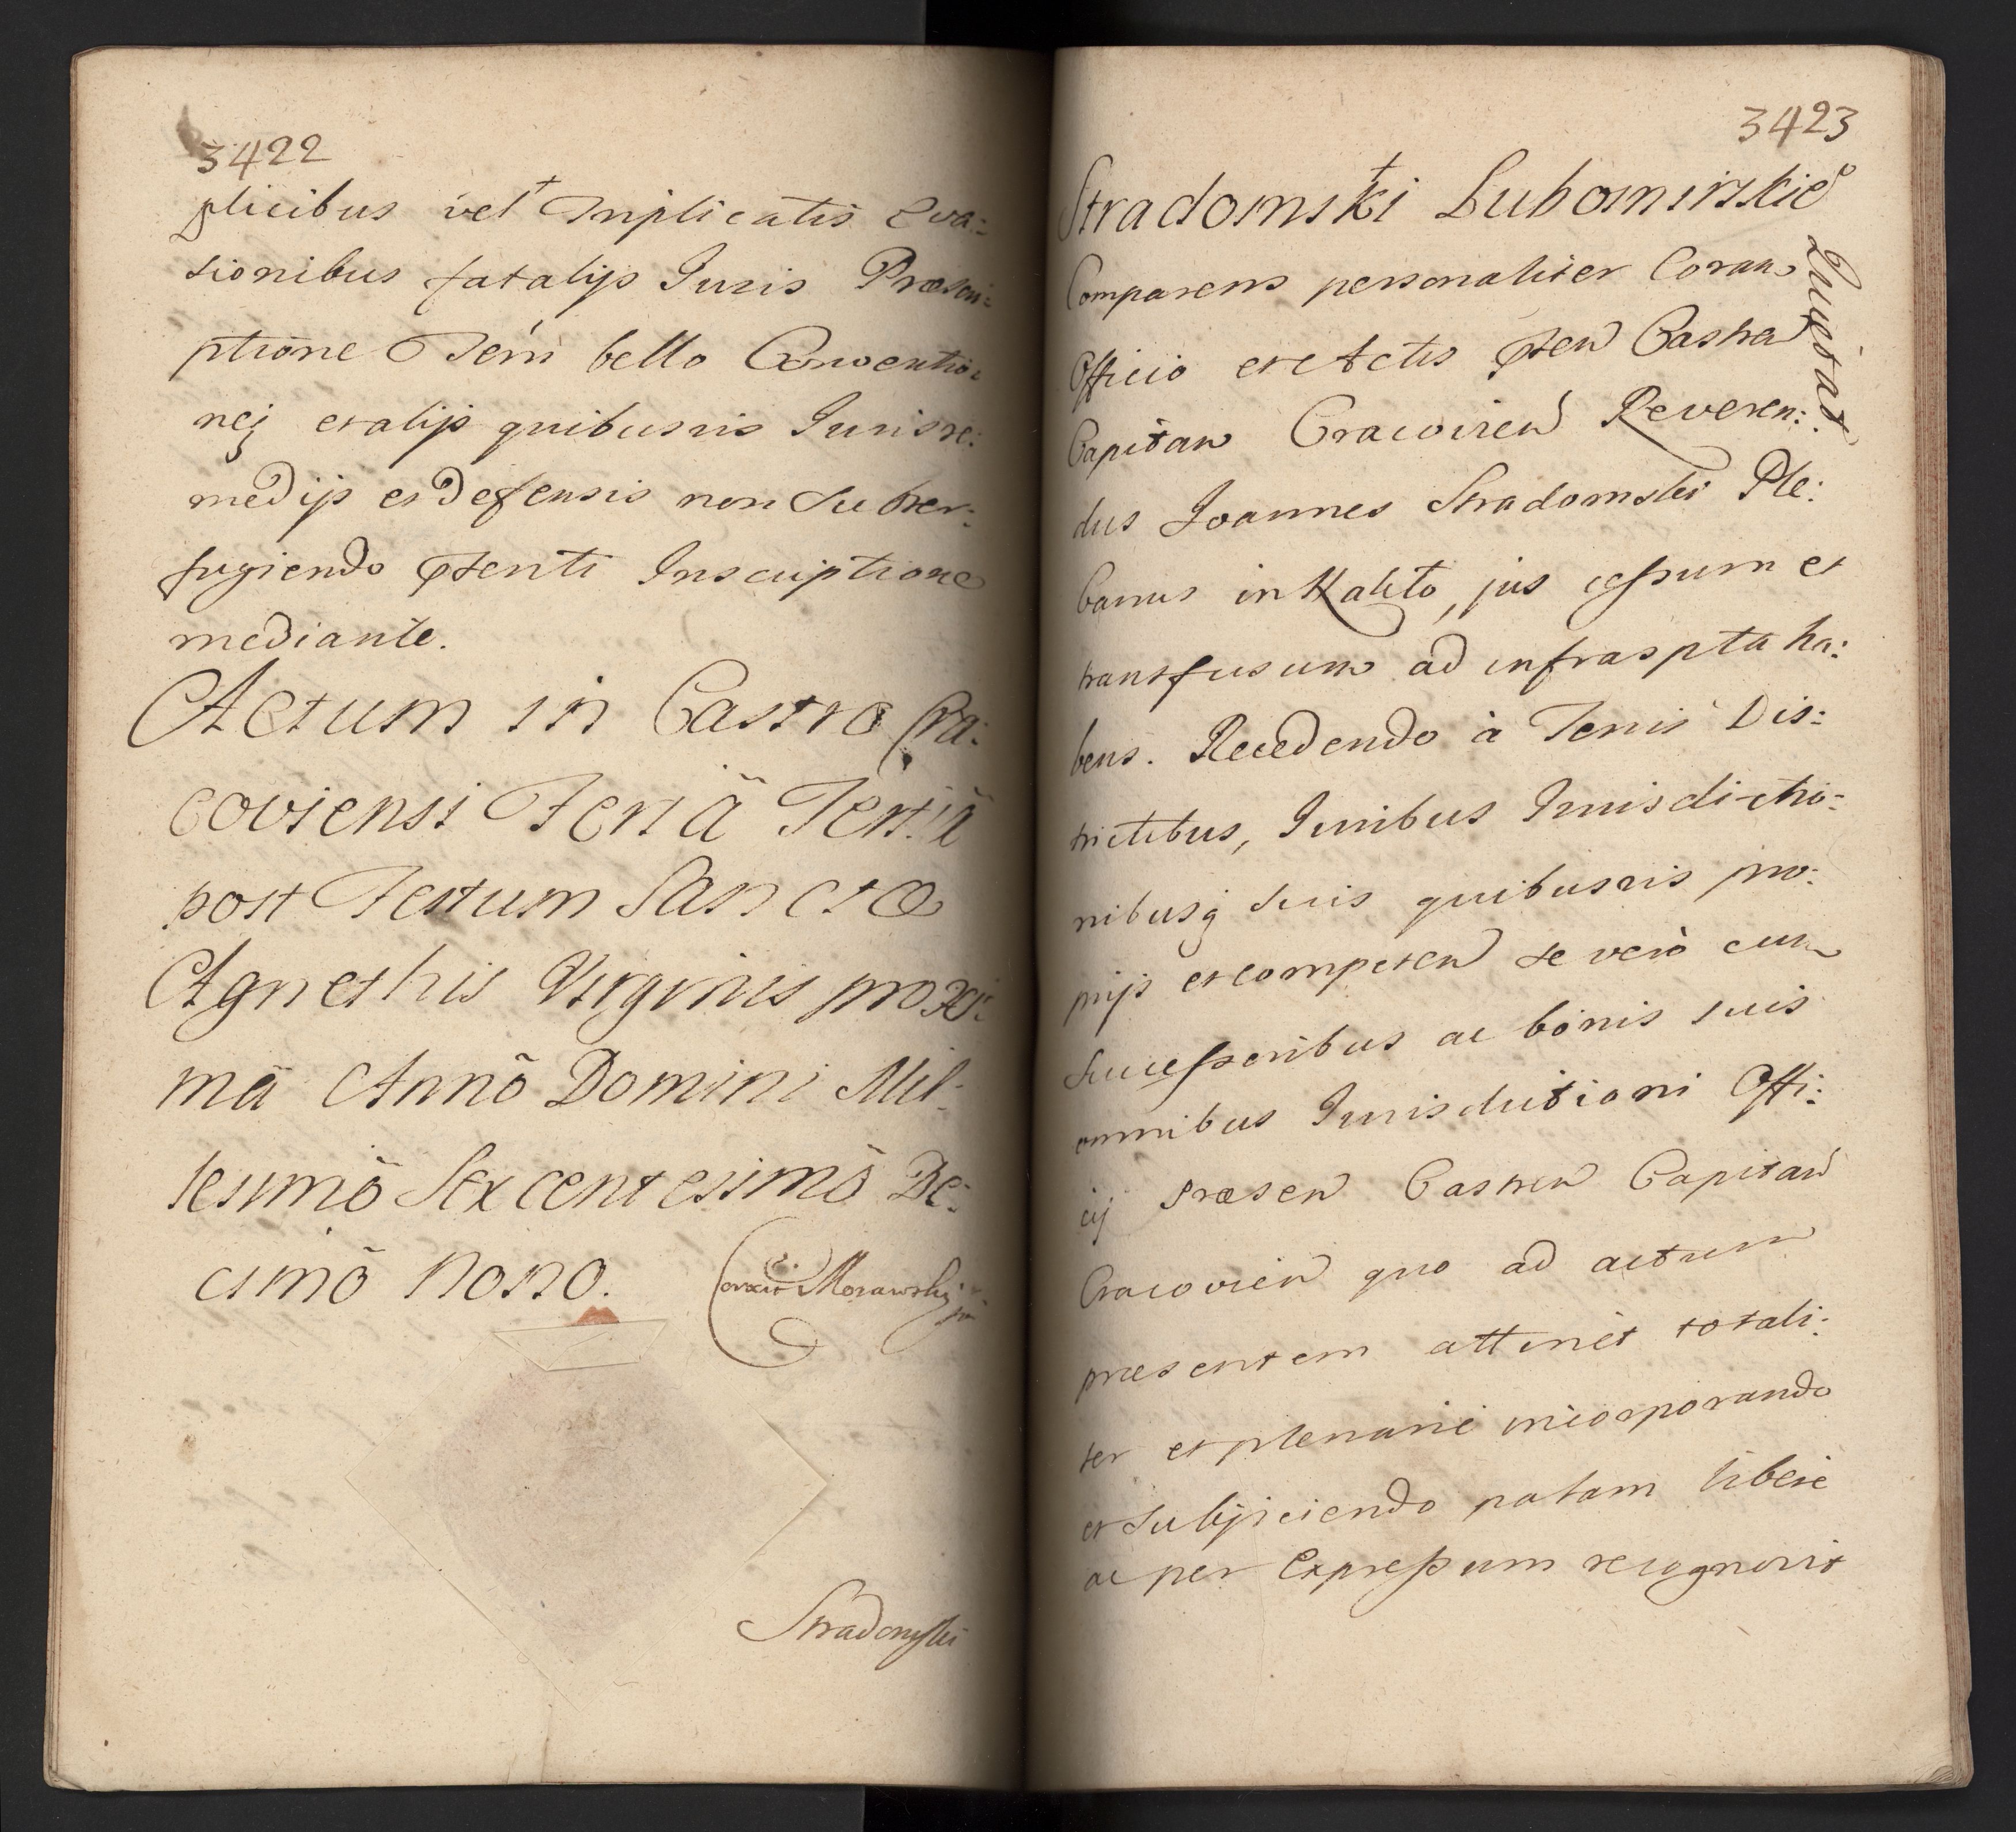 3422
plicibus vel Inplicatis Eva:
sionibus fatalijs Juris Præscri:
ptione Terri bello Conventio:
neq etalijs quibusvis Jurisre:
medijs etdefensis non Subter:
fugiendo pzenti Inscriptione
mediante.
Actum in Castro Cra:
coviensi Feriâ Tertiâ
post Festum Sanctæ
Agnethis Virginis proxi:
mâ Annô Domini Mil:
lesimô Sexcentesimô De:
cimô Nono.
Correxit Morawski
Stradomski
3423
Stradomski Lubomirskie°
Quietat
Comparens personaliter Coram
Officio et Actis pzen Castren
Capitan Cracovien Reveren:
dus Joannes Stradomski Ple:
banus in, jus cessum et
transfusum ad infrasptta ha:
bens. Recedendo à Terris Dis:
trictibus, Juribus Jurisdictio:
nibusq suis quibusvis pro:
prijs etcompeten se verò cum
Successoribus ac bonis suis
omnibus Jurisdictioni Offi:
cij Præsen Castren Capitan
Cracovien quo ad actum
præsentem attinet totali:
ter et plenariè incorporando
et Subijciendo palam liberè
ac per Expressum recognovit